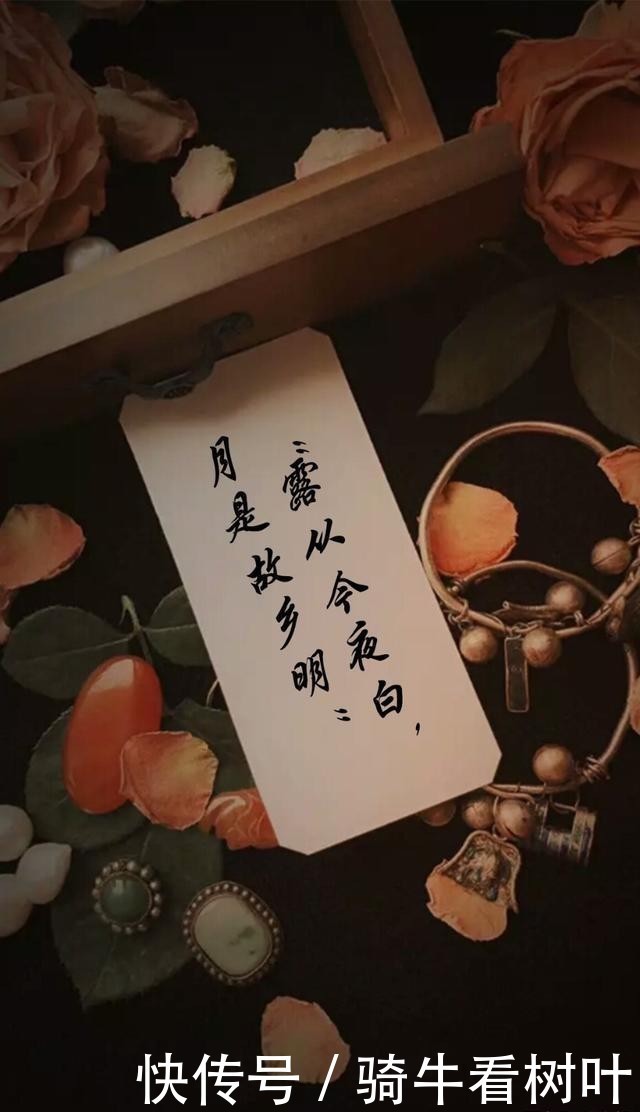 “露从今夜白，
月是故乡明”
快传号 / 骑牛看树叶